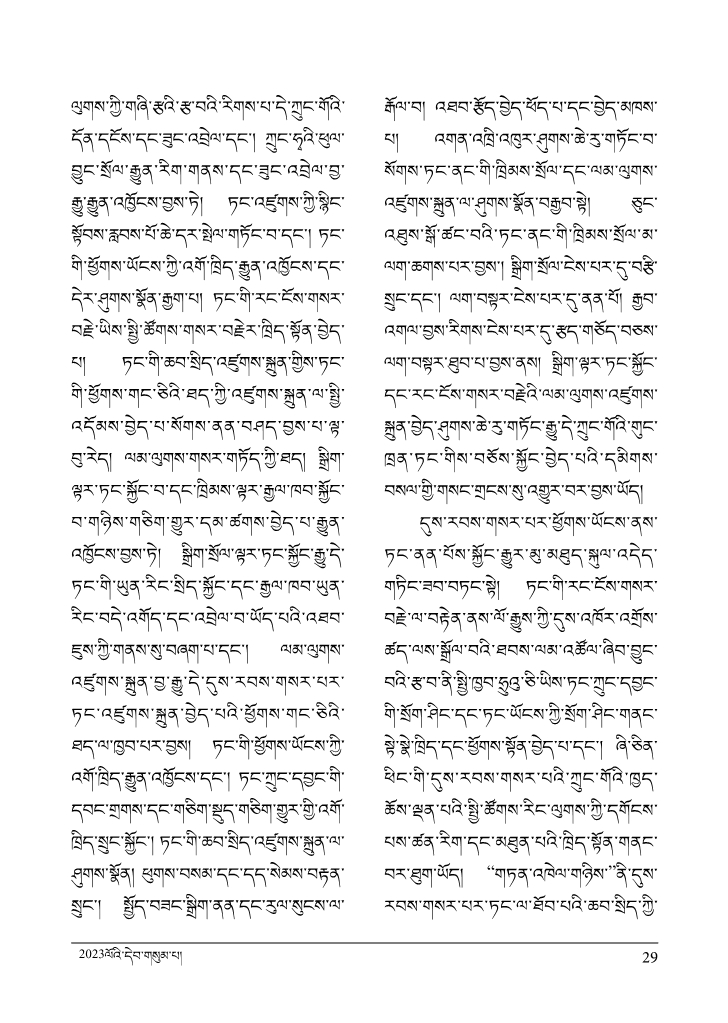 ལུགས་ཀྱི་གཞི་རྩའི་རྩ་བའི་རིགས་པ་དེ་ཀྲུང་གོའི་
དོན་དངོས་དང་ཟུང་འབྲེལ་དང་། ཀྲུང་ཧྭའི་ཕུལ་
བྱུང་སྲོལ་རྒྱུན་རིག་གནས་དང་ཟུང་འབྲེལ་བྱ་
རྒྱུ་རྒྱུན་འཁྱོངས་བྱས་ཏེ། ཏང་འཛུགས་ཀྱི་སྙིང་
སྟོབས་རླབས་པོ་ཆེ་དར་སྤེལ་གཏོང་བ་དང་། ཏང་
གི་ཕྱོགས་ཡོངས་ཀྱི་འགོ་ཁྲིད་རྒྱུན་འཁྱོངས་དང་
དེར་ཤུགས་སྣོན་རྒྱག་པ། ཏང་གི་རང་ངོས་གསར་
བརྗེ་ཡིས་སྤྱི་ཚོགས་གསར་བརྗེར་ཁྲིད་སྟོན་བྱེད་
པ། ཏང་གི་ཆབ་སྲིད་འཛུགས་སྐྲུན་གྱིས་ཏང་
གི་ཕྱོགས་གང་ཅིའི་ཐད་ཀྱི་འཛུགས་སྐྲུན་ལ་སྤྱི་
འདོམས་བྱེད་པ་སོགས་ནན་བཤད་བྱས་པ་ལྟ་
བུ་རེད། ལམ་ལུགས་གསར་གཏོད་ཀྱི་ཐད། སྒྲིག་
ལྟར་ཏང་སྐྱོང་བ་དང་ཁྲིམས་ལྟར་རྒྱལ་ཁབ་སྐྱོང་
བ་གཉིས་གཅིག་གྱུར་དམ་ཚགས་བྱེད་པ་རྒྱུན་
འཁྱོངས་བྱས་ཏེ། སྒྲིག་སྲོལ་ལྟར་ཏང་སྐྱོང་རྒྱུ་དེ་
ཏང་གི་ཡུན་རིང་སྲིད་སྐྱོང་དང་རྒྱལ་ཁབ་ཡུན་
རིང་བདེ་འགོད་དང་འབྲེལ་བ་ཡོད་པའི་འཐབ་
ཇུས་ཀྱི་གནས་སུ་བཞག་པ་དང་། ལམ་ལུགས་
འཛུགས་སྐྲུན་བྱ་རྒྱུ་དེ་དུས་རབས་གསར་པར་
ཏང་འཛུགས་སྐྲུན་བྱེད་པའི་ཕྱོགས་གང་ཅིའི་
ཐད་ལ་ཁྱབ་པར་བྱས། ཏང་གི་ཕྱོགས་ཡོངས་ཀྱི་
འགོ་ཁྲིད་རྒྱུན་འཁྱོངས་དང་། ཏང་ཀྲུང་དབྱང་གི་
དབང་གྲགས་དང་གཅིག་སྡུད་གཅིག་གྱུར་གྱི་འགོ་
ཁྲིད་སྲུང་སྐྱོང་། ཏང་གི་ཆབ་སྲིད་འཛུགས་སྐྲུན་ལ་
ཤུགས་སྣོན། ཕུགས་བསམ་དང་དད་སེམས་བརྟན་
སྲུང་། སྤྱོད་བཟང་སྒྲིག་ནན་དང་རུལ་སུངས་ལ་
རྒོལ་བ། འཐབ་རྩོད་བྱེད་ཕོད་པ་དང་བྱེད་མཁས་
པ། འགན་འཁྲི་འཁུར་ཤུགས་ཆེ་རུ་གཏོང་བ་
སོགས་ཏང་ནང་གི་ཁྲིམས་སྲོལ་དང་ལམ་ལུགས་
འཛུགས་སྐྲུན་ལ་ཤུགས་སྣོན་བརྒྱབ་སྟེ། ཅུང་
འཐུས་སྒོ་ཚང་བའི་ཏང་ནང་གི་ཁྲིམས་སྲོལ་མ་
ལག་ཆགས་པར་བྱས། སྒྲིག་སྲོལ་ངེས་པར་དུ་བརྩི་
སྲུང་དང་། ལག་བསྟར་ངེས་པར་དུ་ནན་པོ། རྒྱབ་
འགལ་བྱས་རིགས་ངེས་པར་དུ་རྩད་གཅོད་བཅས་
ལག་བསྟར་ཐུབ་པ་བྱས་ནས། སྒྲིག་ལྟར་ཏང་སྐྱོང་
དང་རང་ངོས་གསར་བརྗེའི་ལམ་ལུགས་འཛུགས་
སྐྲུན་བྱེད་ཤུགས་ཆེ་རུ་གཏོང་རྒྱུ་དེ་ཀྲུང་གོའི་གུང་
ཁྲན་ཏང་གིས་བཅོས་སྐྱོང་བྱེད་པའི་དམིགས་
བསལ་གྱི་གསང་གྲངས་སུ་འགྱུར་བར་བྱས་ཡོད།
དུས་རབས་གསར་པར་ཕྱོགས་ཡོངས་ནས་
ཏང་ནན་པོས་སྐྱོང་རྒྱུར་མུ་མཐུད་སྐུལ་འདེད་
གཏིང་ཟབ་བཏང་སྟེ། ཏང་གི་རང་ངོས་གསར་
བརྗེ་ལ་བརྟེན་ནས་ལོ་རྒྱུས་ཀྱི་དུས་འཁོར་འགྲོས་
ཚད་ལས་སྒྲོལ་བའི་ཐབས་ལམ་འཚོལ་ཞིབ་བྱུང་
བའི་རྩ་བ་ནི་སྤྱི་ཁྱབ་ཧྲུའུ་ཅི་ཡིས་ཏང་ཀྲུང་དབྱང་
གི་སྲོག་ཤིང་དང་ཏང་ཡོངས་ཀྱི་སྲོག་ཤིང་གནང་
སྟེ་སྣེ་ཁྲིད་དང་ཕྱོགས་སྟོན་བྱེད་པ་དང་། ཞི་ཅིན་
ཕིང་གི་དུས་རབས་གསར་པའི་ཀྲུང་གོའི་ཁྱད་
ཆོས་ལྡན་པའི་སྤྱི་ཚོགས་རིང་ལུགས་ཀྱི་དགོངས་
པས་ཚན་རིག་དང་མཐུན་པའི་ཁྲིད་སྟོན་གནང་
བར་ཐུག་ཡོད། “གཏན་འཁེལ་གཉིས་”ནི་དུས་
རབས་གསར་པར་ཏང་ལ་ཐོབ་པའི་ཆབ་སྲིད་ཀྱི་
2023ལོའི་དེབ་གསུམ་པ། 29